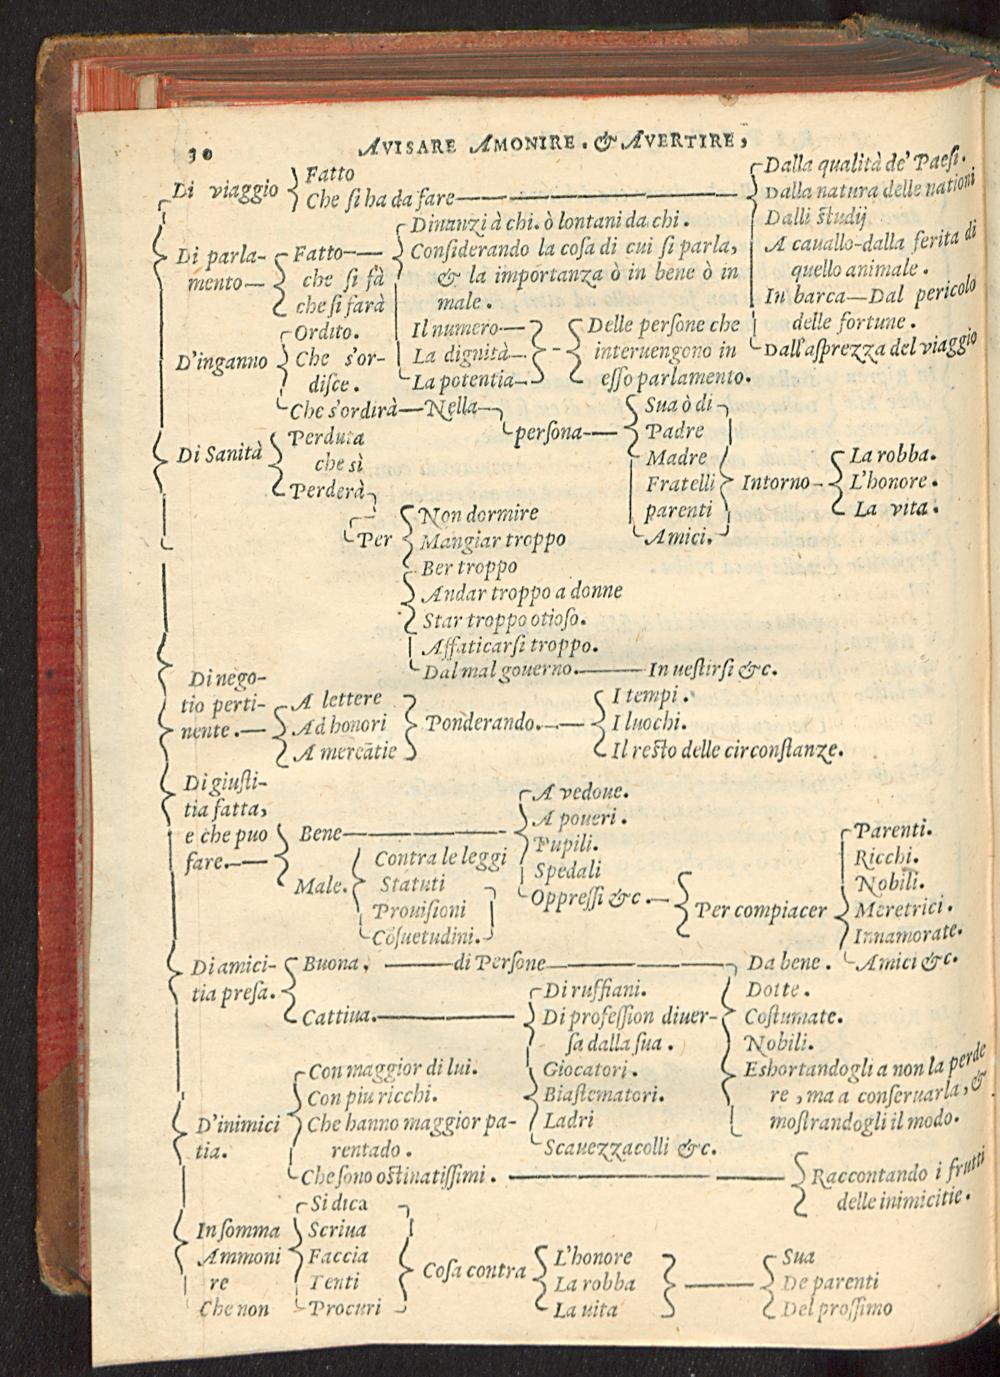 30 AVISARE AMONIRE. & AVERTIRE,
Di viaggio
Fatto
Che si ha da fare
Dalla qualità de' Paesi.
Dalla natura delle nationi
Dalli studij
A cauallo-dalla ferita di
quello animale.
In barca—Dal pericolo
delle fortune.
Dall'asprezza del viaggio
Di parla-
mento—
Fatto—
che si fà
che si farà
Dinanzi à chi. ò lontani da chi.
Considerando la cosa di cui si parla,
& la importanza ò in bene ò in
male.
Il numero—
La dignità—
La potentia—
Delle persone che
interuengono in
esso parlamento.
D'inganno
Ordito.
Che s'or-
disce.
Che s'ordirà—Nella
persona—
Sua ò di
Padre
Madre
Fratelli
parenti
Amici.
Intorno—
La robba.
L'honore.
La vita.
Di Sanità
Perduta
che sì
Perderà
Per
Non dormire
Mangiar troppo
Ber troppo
Andar troppo a donne
Star troppo otioso.
Affaticarsi troppo.
Dal mal gouerno.——In uestirsi &c.
Di nego-
tio perti-
nente.—
A lettere
Ad honori
A mercãtie
Ponderando.—
I tempi.
I luochi.
Il resto delle circonstanze.
Di giusti-
tia fatta,
e che puo
fare.—
Bene
A vedoue.
A poueri.
Pupili.
Spedali
Oppressi &c.—
Male.
Contra le leggi
Statuti
Prouisioni
Cõsuetudini.
Per compiacer
Parenti.
Ricchi.
Nobili.
Meretrici.
Innamorate.
Amici &c.
Di amici-
tia presa.
Buona, ——di Persone——
Da bene.
Dotte.
Costumate.
Nobili.
Eshortandogli a non la perde
re, ma a conseruarla, &
mostrandogli il modo.
Cattiua.
Di ruffiani.
Di profession diuer-
sa dalla sua.
Giocatori.
Biastematori.
Ladri
Scauezzacolli &c.
D'inimici
tia.
Con maggior di lui.
Con piu ricchi.
Che hanno maggior pa-
rentado.
Che sono ostinatissimi.
Raccontando i frutti
delle inimicitie.
In somma
Ammoni
re
Che non
Si dica
Scriua
Faccia
Tenti
Procuri
Cosa contra
L'honore
La robba
La uita
Sua
De parenti
Del prossimo